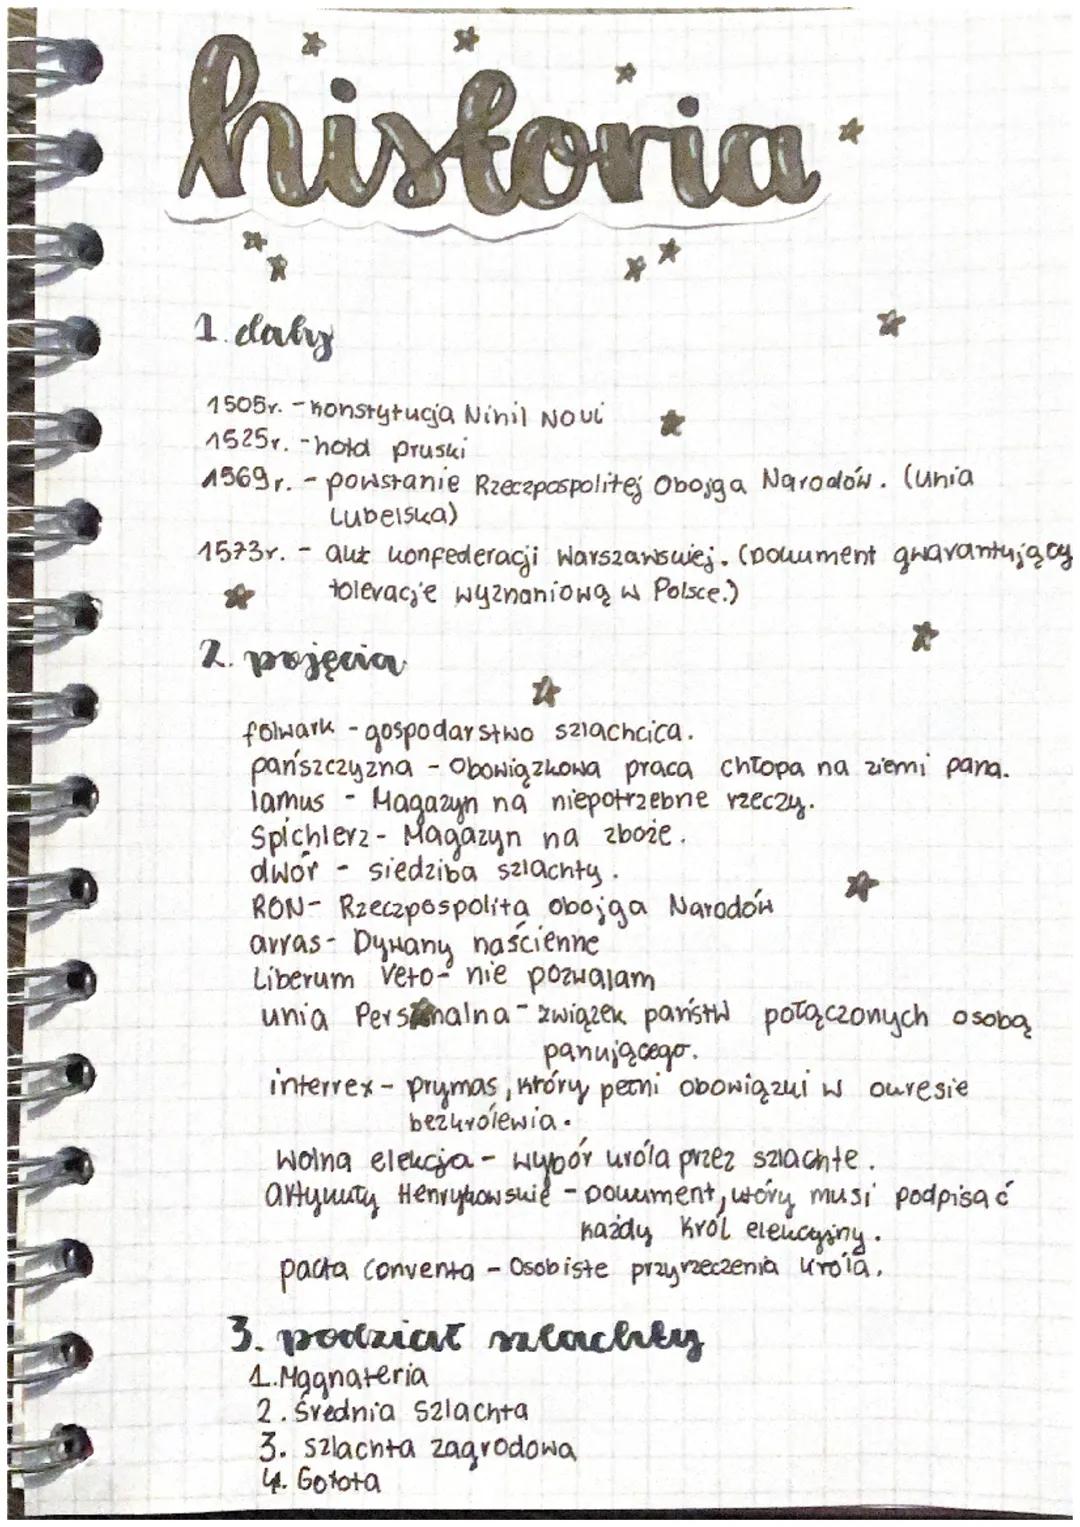 historia
1. daty
1505r. - konstytucja Nihil Novi
1525r. - hołd pruski
1569r. - powstanie Rzeczpospolitej Obojga Narodów. (unia
Lubelska)
1573r. - akt konfederacji Warszawskiej. (Dokument gwarantujący
tolerację wyznaniową w Polsce.)
2. pojęcia
folwark - gospodarstwo szlachcica.
pańszczyzna - Obowiązkowa praca chłopa na ziemi pana.
lamus - Magazyn na niepotrzebne rzeczy.
Spichlerz - Magazyn na zboże.
dwór - siedziba szlachty.
RON - Rzeczpospolita obojga Narodów
arras - Dywany naścienne
Liberum Veto - nie pozwalam
unia Personalna - związek państw połączonych osobą
panującego.
interrex - prymas, który pełni obowiązki w okresie
bezkrólewia.
wolna elekcja - wybór króla przez szlachte.
artykuły Henrykowskie - Dokument, który musi podpisać
każdy król elekcyjny.
pacta conventa - Osobiste przyrzeczenia króla.
3. podział szlachty
1. Magnateria
2. Średnia szlachta
3. szlachta zagrodowa
4. Gołota